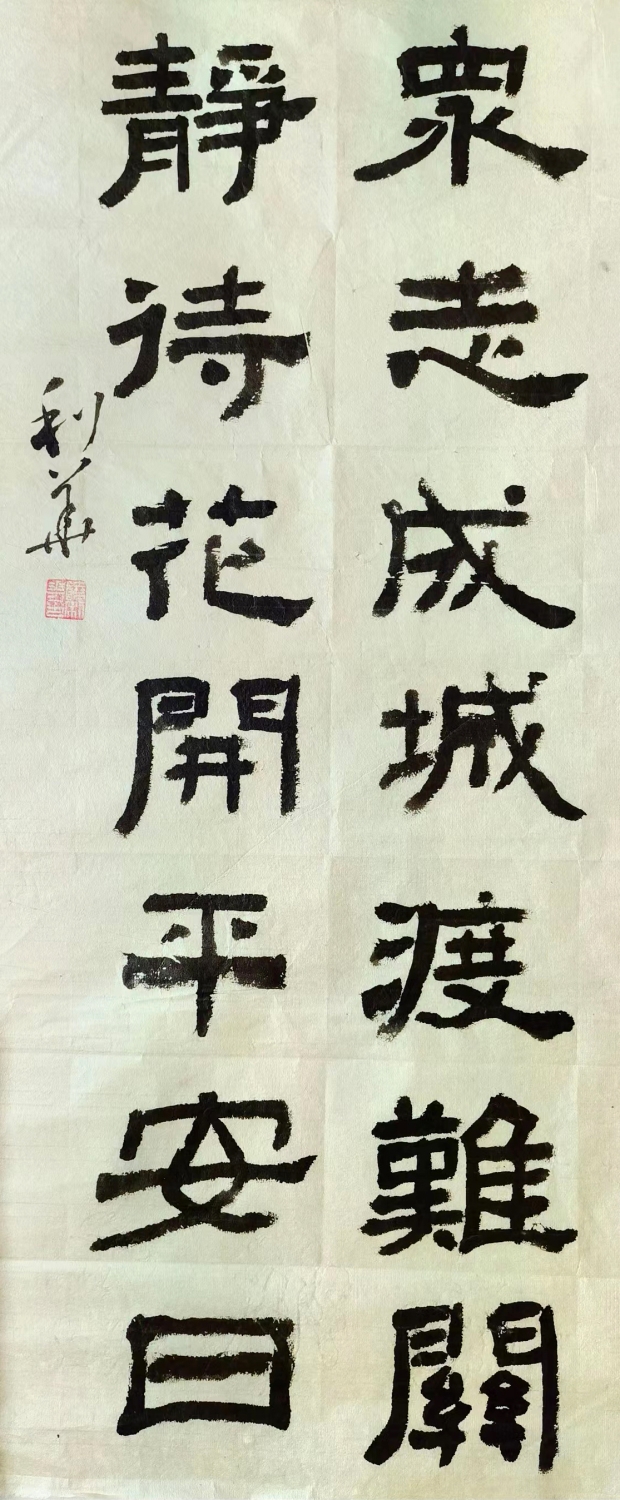 眾志成城渡難關
靜待花開平安日
利華